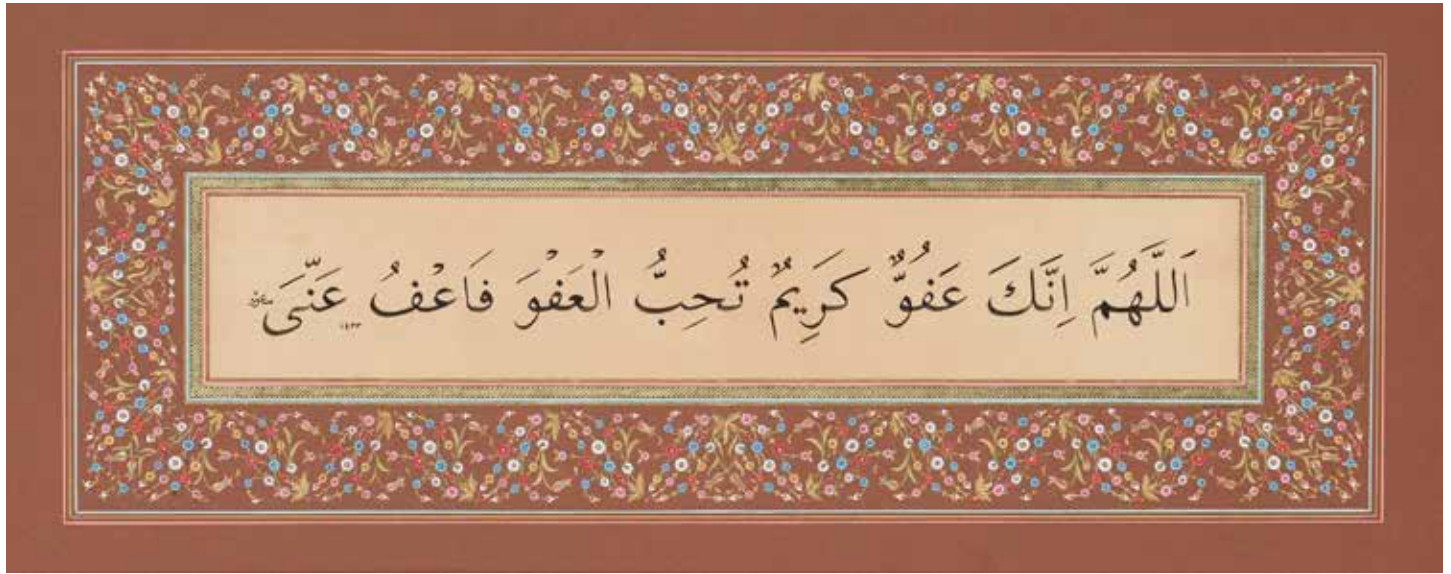 اَللَّهُمَّ اِنَّكَ عَفُوٌّ كَرِيمٌ تُحِبُّ الْعَفْوَ فَاعْفُ عَنّٖى
١٤٣٣